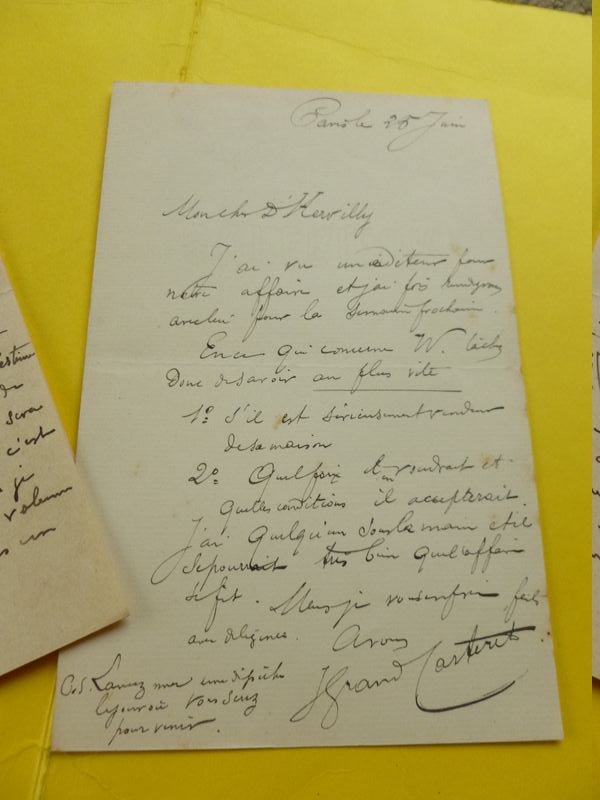 Paris le 25 Juin
Mon cher D'Hervilly
J'ai vu un éditeur pour
notre affaire et j'ai pris rendezvous
avec lui pour la semaine prochaine.
En ce qui concerne W. tâchez
donc de savoir au plus vite
1º S'il est sérieusement vendeur
de sa maison
2º Quel prix il en voudrait et
quelles conditions il accepterait.
J'ai quelqu'un sous la main et il
se pourrait très bien que l'affaire
se fit. Mais je vous en prie faites
avec diligence. A vous
J Grand Carteret
P.S. Lancez moi une dépêche
le jour où vous devez
pour venir.
de
sera
c'est
je
volume
un